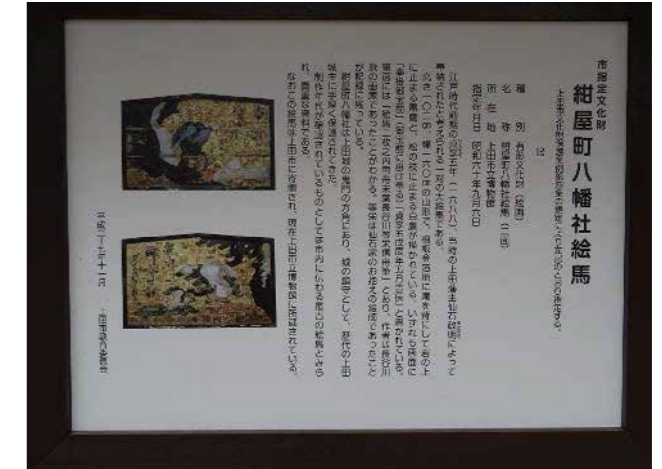 市指定文化財
紺屋町八幡社絵馬
上田市文化財保護条例第四条の規定により次のとおり指定する。
記
種別 有形文化財（絵画）
名称 紺屋町八幡社絵馬（二面）
所在地 上田市立博物館
指定年月日 昭和六十年九月六日
江戸時代前期の貞享五年（一六八八）、当時の上田藩主仙石政明によって
奉納されたと考えられる一対の大絵馬である。
高さ一〇三cm、幅一六〇cmの山形で、桐板金箔地に滝を背にして岩の上
に止まる黒鷹と、松の枝に止まる白鷹が描かれている。いずれも画面に
「奉掛御宝前」「貞享五戊辰年五月吉辰」と書かれている。
「絵馬二枚之内」とあり、作者は長谷川
派の画家であったことがわかる。等栄は仙石家のお抱えの絵師であったこと
が記録に残っている。
紺屋町八幡社は上田城の鬼門の方角にあり、城の鎮守として、歴代の上田
城主に手厚く保護されてきた。
制作年代が確認されているものとしては市内に伝わる最古の絵馬とみら
れ、貴重な資料である。
なおこの絵馬は上田市に寄託され、現在上田市立博物館に所蔵されている。
平成二十五年十一月
上田市教育委員会